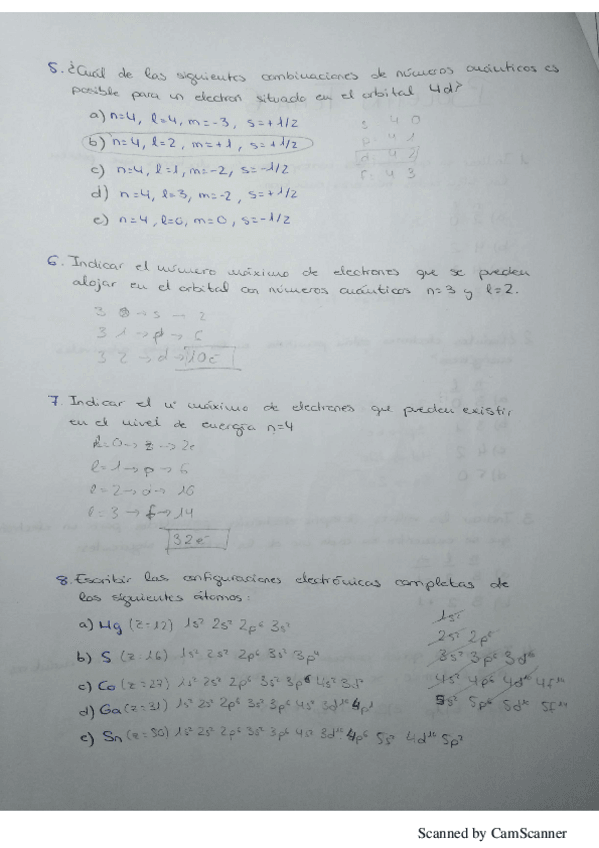 5. ¿Cuál de las siguientes combinaciones de números cuánticos es
posible para un electron situado en el orbital 4d?
a) n=4, l=4, m=-3, s=+1/2
s: 4 0
b) n=4, l=2, m=+1, s=+1/2
p: 4 1
d: 4 2
c) n=4, l=1, m=-2, s=-1/2
f: 4 3
d) n=4, l=3, m=-2, s=+1/2
e) n=4, l=0, m=0, s=-1/2
6. Indicar el número máximo de electrones que se pueden
alojar en el orbital con números cuánticos n=3 y l=2.
3 0 → s → 2
3 1 → p → 6
3 2 → d → 10e⁻
7 Indicar el nº máximo de electrones que pueden existir
en el nivel de energía n=4
l=0 → s → 2e
l=1 → p → 6
l=2 → d → 10
l=3 → f → 14
32e⁻
8. Escribir las configuraciones electrónicas completas de
los siguientes átomos:
a) Mg (z=12) 1s² 2s² 2p⁶ 3s²
b) S (z=16) 1s² 2s² 2p⁶ 3s² 3p⁴
c) Co (z=27) 1s² 2s² 2p⁶ 3s² 3p⁶ 4s²
d) Ga (z=31) 1s² 2s² 2p⁶ 3s² 3p⁶ 4s² 3d¹⁰ 4p¹
e) Sn (z=50) 1s² 2s² 2p⁶ 3s² 3p⁶ 4s² 3d¹⁰ 4p⁶ 5s² 4d¹⁰ 5p²
1s²
2s² 2p⁶
3s² 3p⁶ 3d¹⁰
4s² 4p⁶ 4d¹⁰ 4f¹⁴
5s² 5p⁶ 5d¹⁰ 5f¹⁴
Scanned by CamScanner